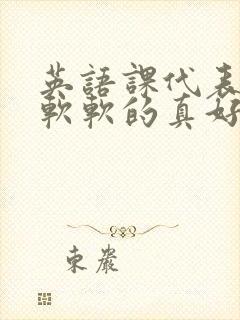 英語課代表
軟軟的真好
東巖